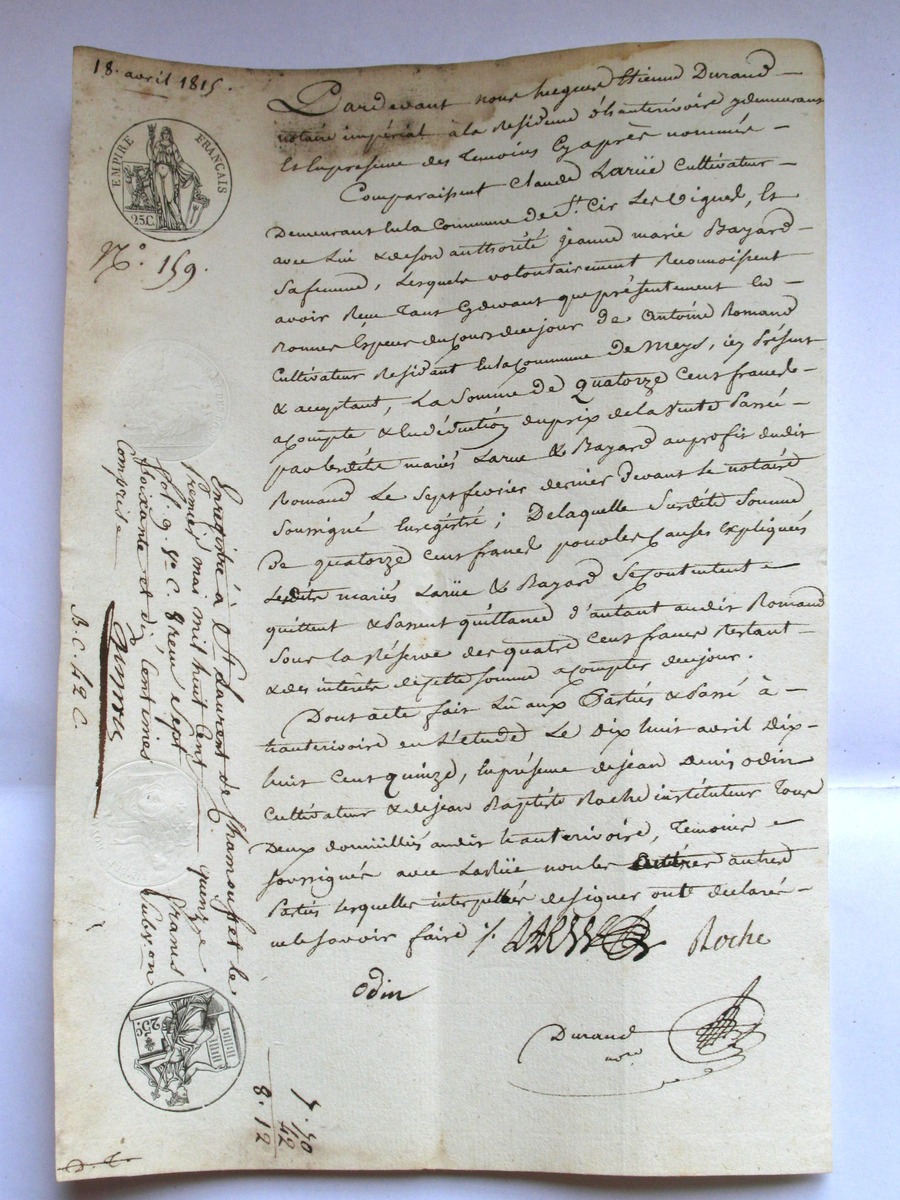 18. avril 1815.
EMPIRE FRANÇAIS
25C.
N.° 159.
Pardevant nous Etienne Durand
notaire impérial à la Residence d'hauterivoire y demeurant
Et En presence des Temoins Cy après nommés
Comparaissent Claude Larüe Cultivateur
Demeurant En la Commune de St. Cir Les Vignes, Et
avec Lui & de son authorité jeanne marie Bayard
Sa femme, Lesquels volontairement Reconnoissent
avoir Reçu Tant Cydevant que présentement En
Bonnes Especes du Cours de ce jour de Antoine Romand
Cultivateur Residant En la Commune de Meys, icy Présent
& acceptant, La Somme de Quatorze Cent francs
a Compte & En déduction du prix de la Vente Passée
par lesdits mariés Larüe & Bayard au profit dudit
Romand Le Sept fevrier dernier Devant le notaire
Soussigné Enregistré ; De laquelle Susdite Somme
De quatorze Cent francs pour les Causes Expliquées
Lesdits mariés Larüe & Bayard Se Contentent
quittent & Passent quittance d'autant audit Romand
Sous la Réserve des quatre Cent francs Restant
& des interêts de Cette Somme a Compter de ce jour.
Dont acte fait Lû aux Parties & Passé à
hauterivoire en L'étude Le Dix huit avril Dix
huit Cent quinze, En présence de jean Denis Odin
Cultivateur & de jean Baptiste Roche instituteur Tous
Deux domiciliés audit hauterivoire, Temoins
Soussignés avec Larüe non les autres
Parties Lesquelles interpellées de signer ont déclaré
ne le Savoir faire
Roche
Odin
Durand
nore
Enregistré à St Laurent de Chamousset le
Premier mai mil huit Cent quinze
fol. 9. Vo C. 8 reçu Sept francs
Soixante et dix Centimes Subvon
Comprise
B. C. 42 C
25C.
7. 70
42
8. 12